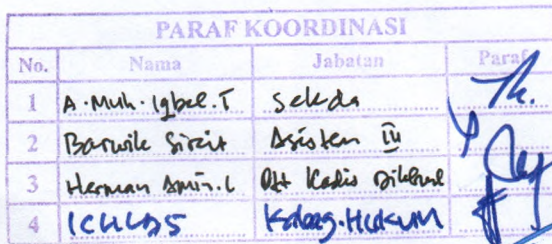 PARAF KOORDINASI
No. Nama Jabatan Paraf
1 A. Muh. Iqbal. T Sekda
2 Barwik Sirait Asisten III
3 Herman Amin. L Kadis
4 ICHLAS Kabag. HUKUM